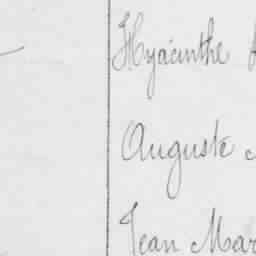 Hyacinthe
Auguste
Jean Mar